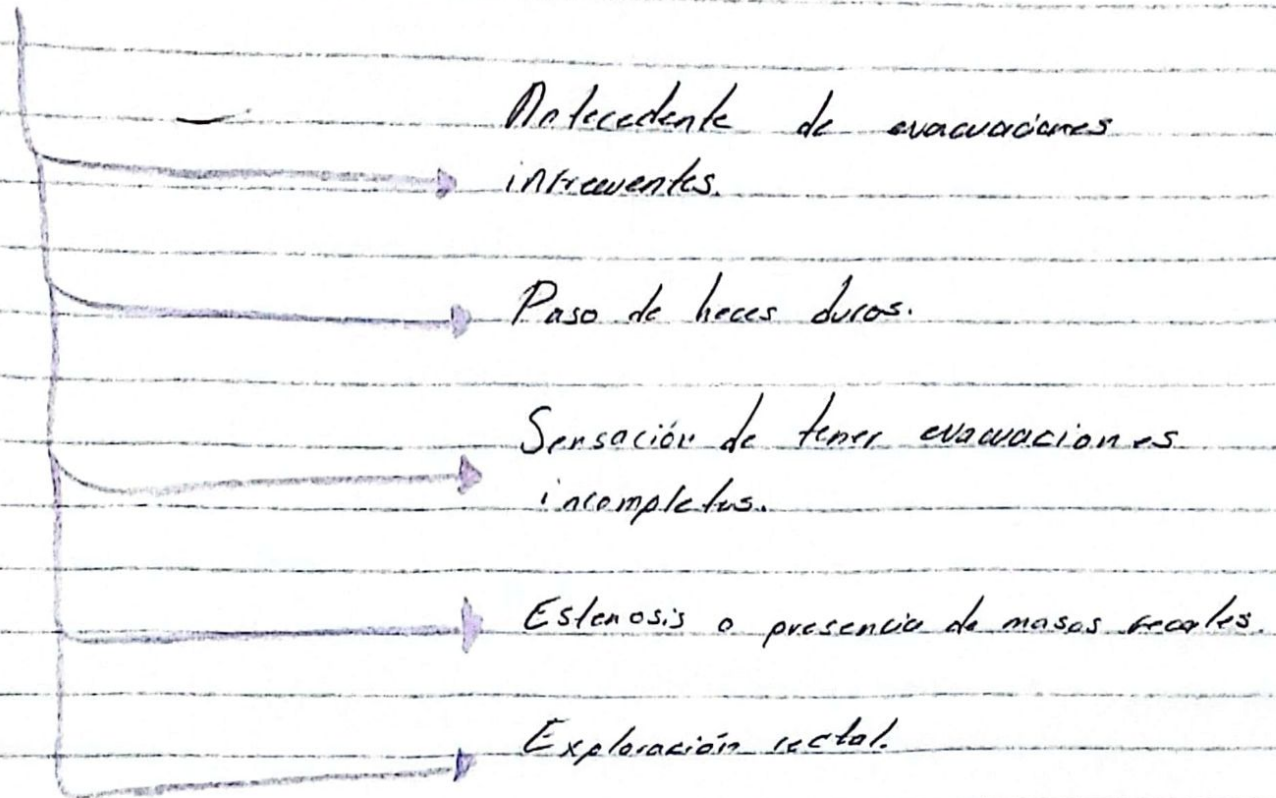 Antecedente de evacuaciones
infrecuentes.
Paso de heces duras.
Sensación de tener evacuaciones
incompletas.
Estenosis o presencia de masas fecales.
Exploración rectal.